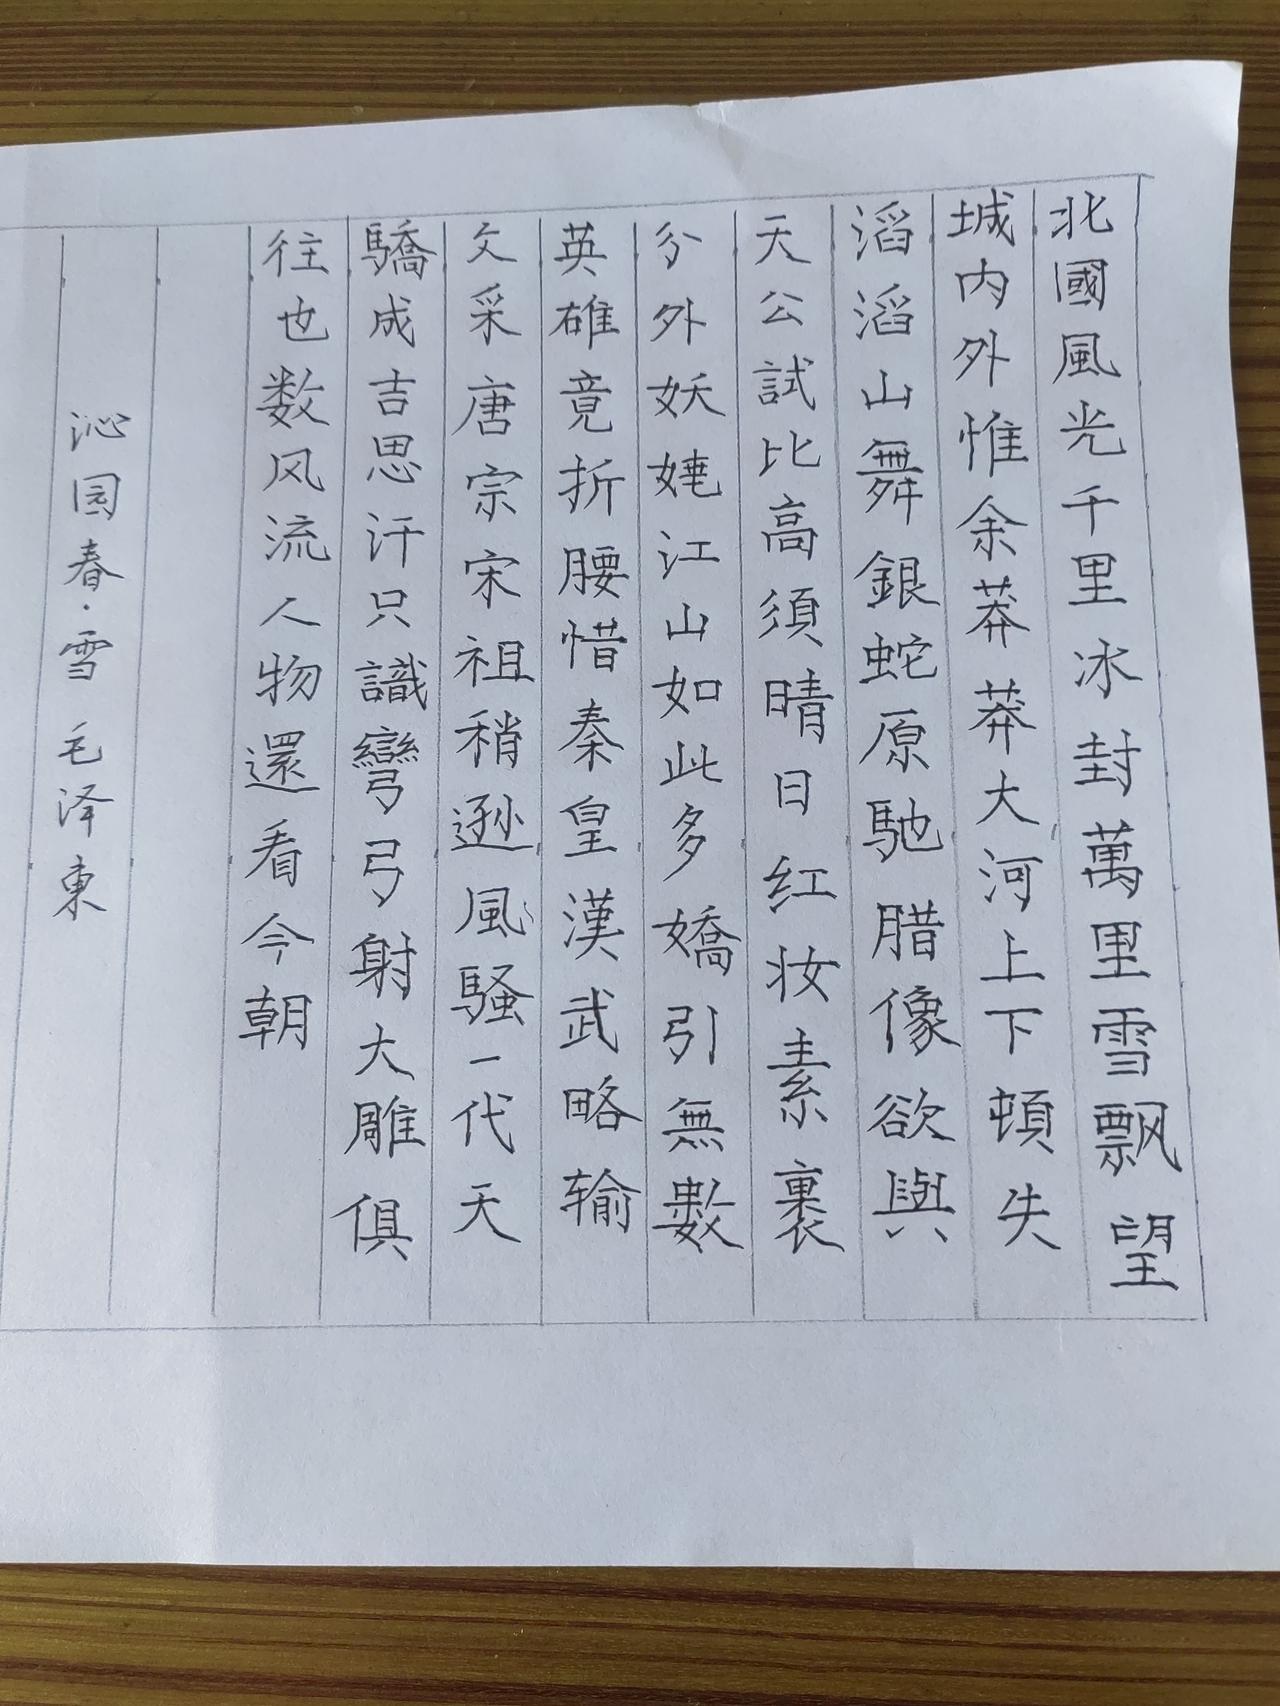 北國風光千里冰封萬里雪飘望
城内外惟余莽莽大河上下頓失
滔滔山舞銀蛇原馳腊像欲與
天公試比高須晴日红妆素裹
分外妖娆江山如此多嬌引無數
英雄竟折腰惜秦皇漢武略输
文采唐宗宋祖稍逊風騷一代天
驕成吉思汗只識彎弓射大雕俱
往也数风流人物還看今朝
沁园春·雪 毛泽東